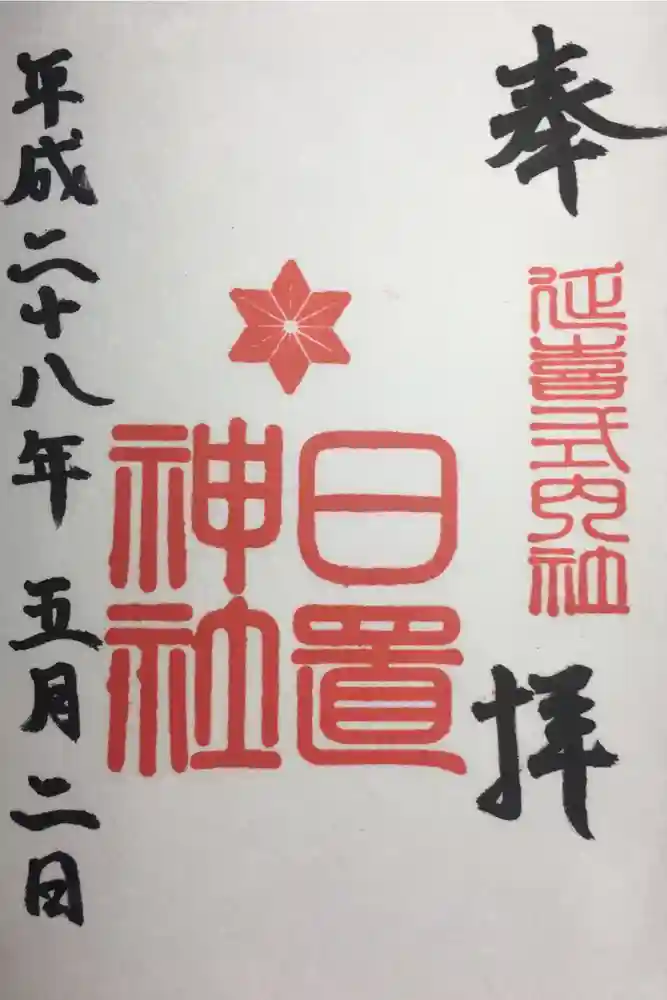 奉拝
延喜式内社
日置
神社
平成二十八年 五月二日